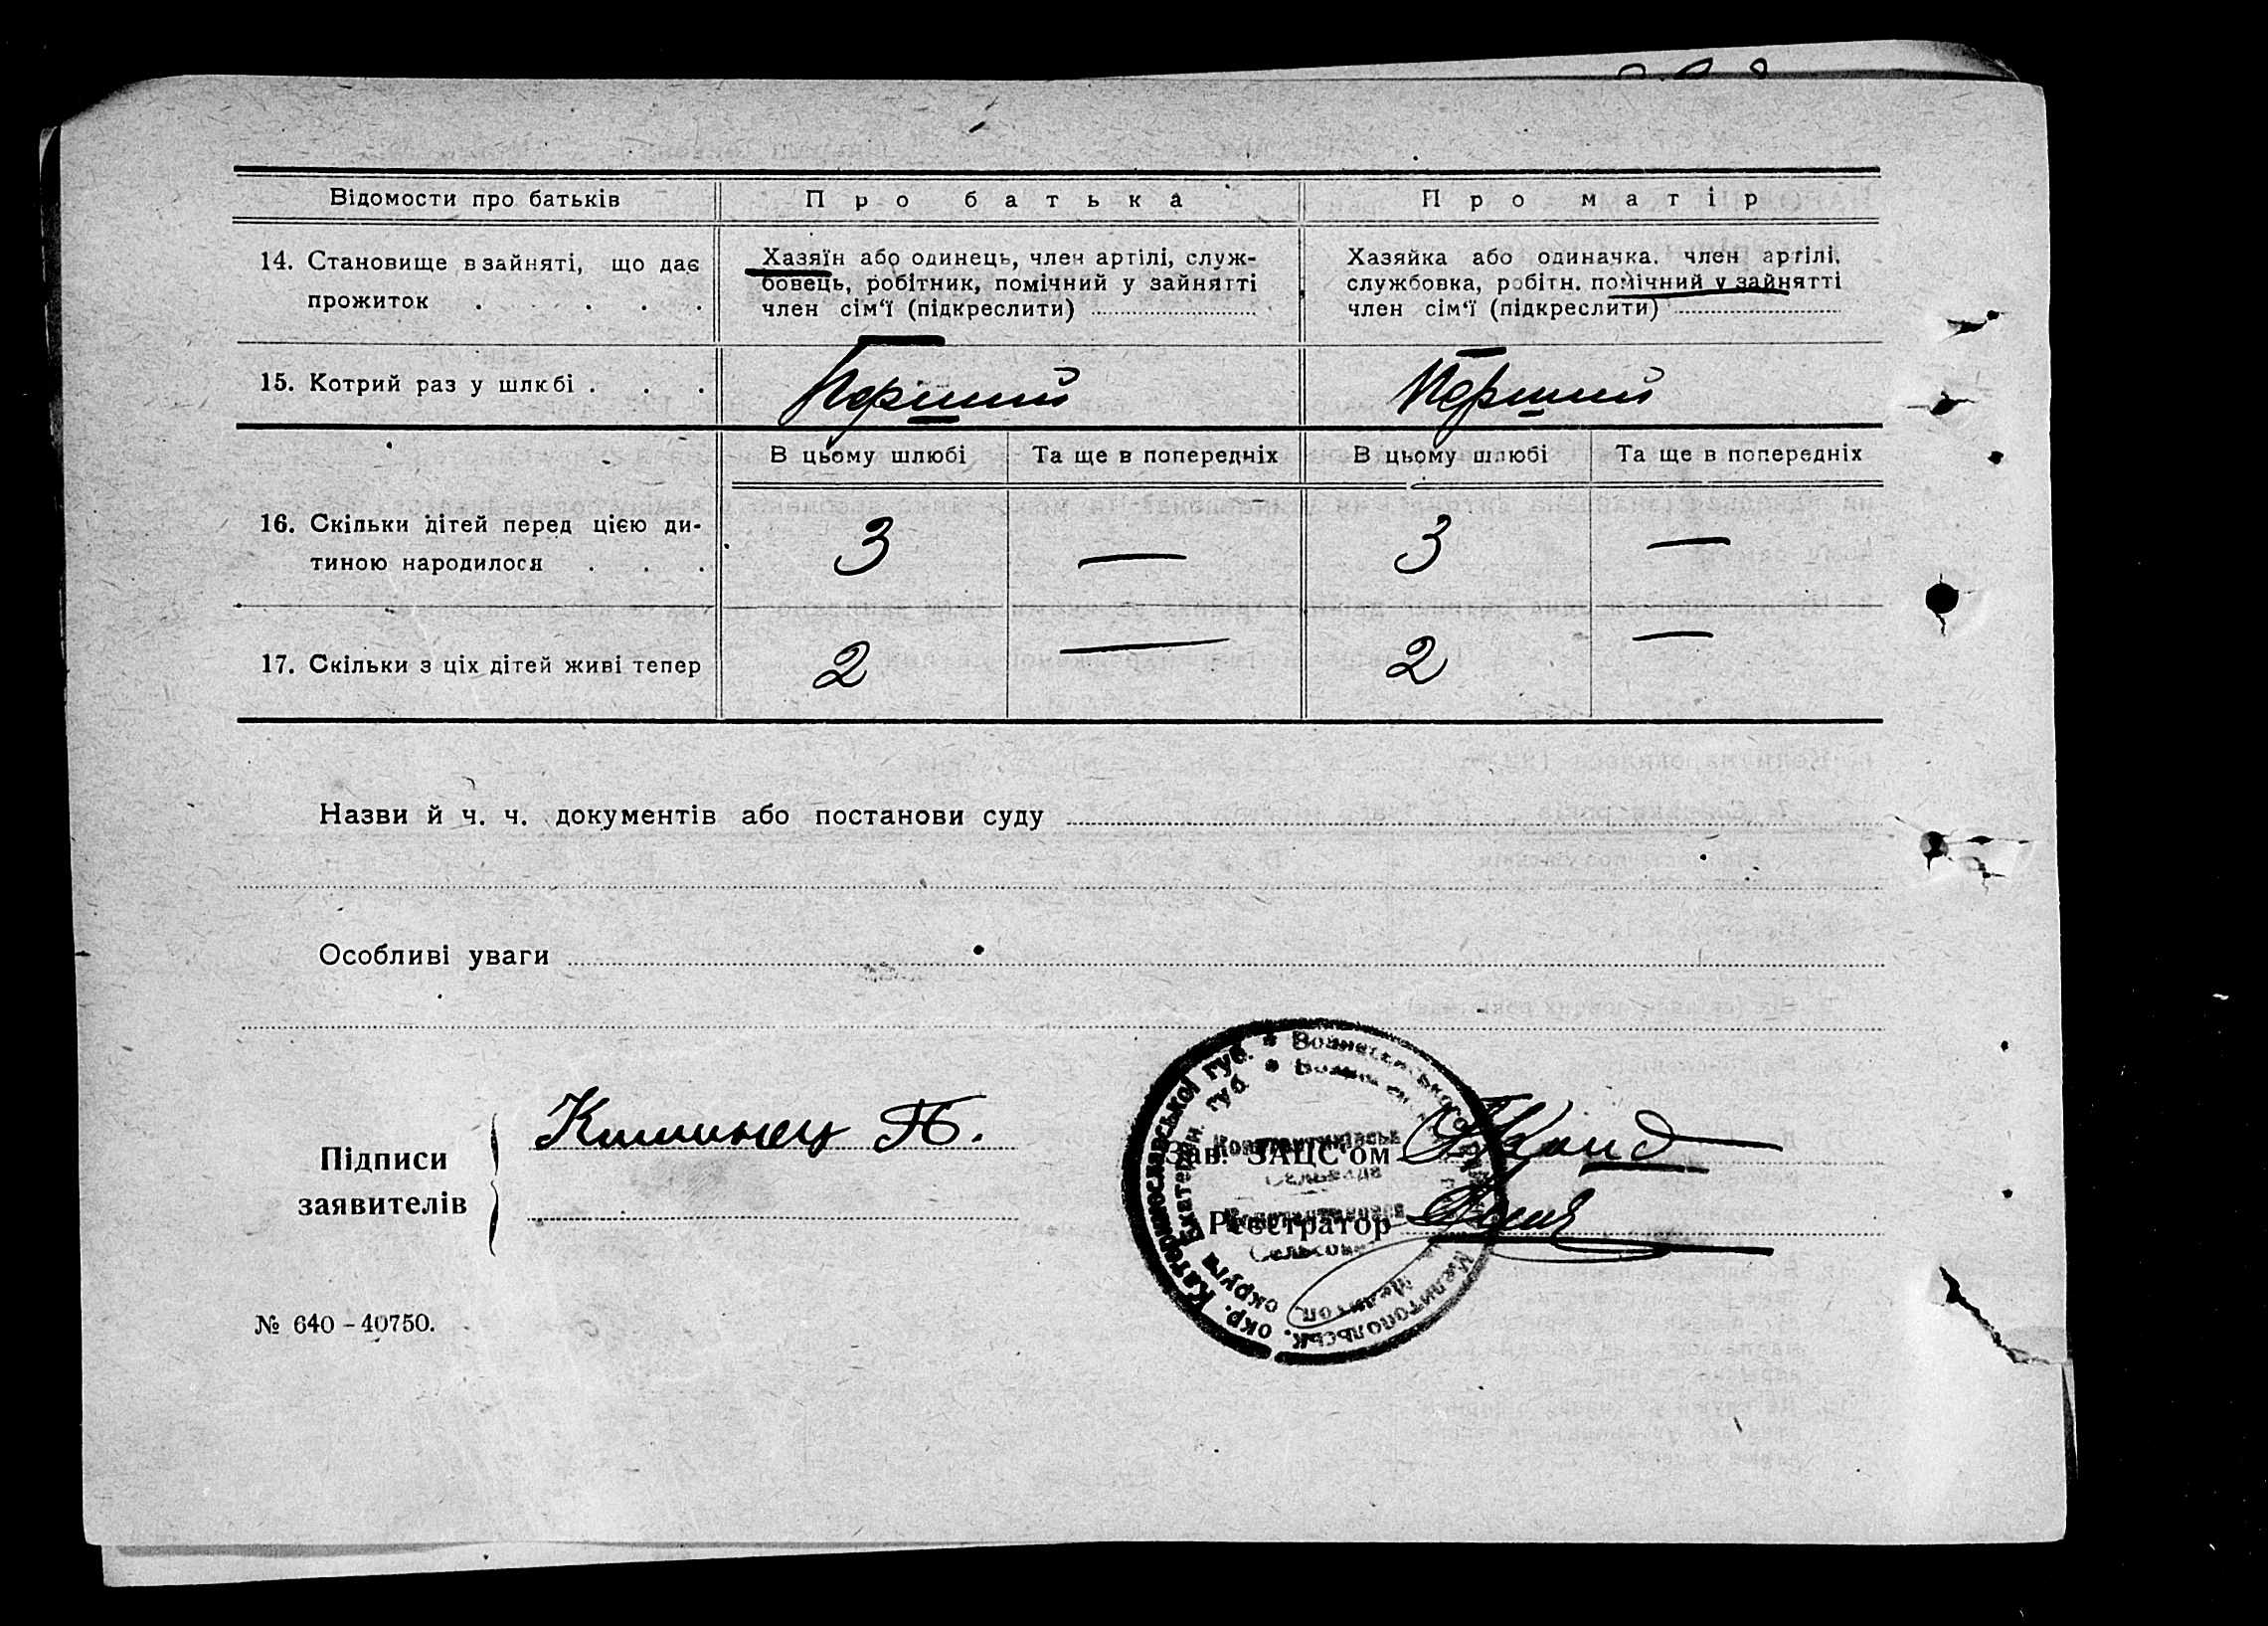 Відомости про батьків
Про батька
Про матір
14. Становище в зайняті, що дає
прожиток . . . .
Хазяїн або одинець, член артілі, служ-
бовець, робітник, помічний у зайнятті
член сім‘ї (підкреслити)
Хазяйка або одиначка. член артілі,
службовка, робітн. помічний у зайнятті
член сім‘ї (підкреслити)
15. Котрий раз у шлюбі . . .
Перший
Перший
В цьому шлюбі
Та ще в попередніх
В цьому шлюбі
Та ще в попередніх
16. Скільки дітей перед цією ди-
тиною народилося . . .
3
—
3
—
17. Скільки з ціх дітей живі тепер
2
—
2
—
Назви й ч. ч. документів або постанови суду
Особливі уваги
Підписи
заявителів
П.
Зав. ЗАЦС‘ом
Реєстратор
окр. Катеринославської губ.
Мелитопольськ.
округа Екатерин. губ
Сельсов
№ 640 - 40750.